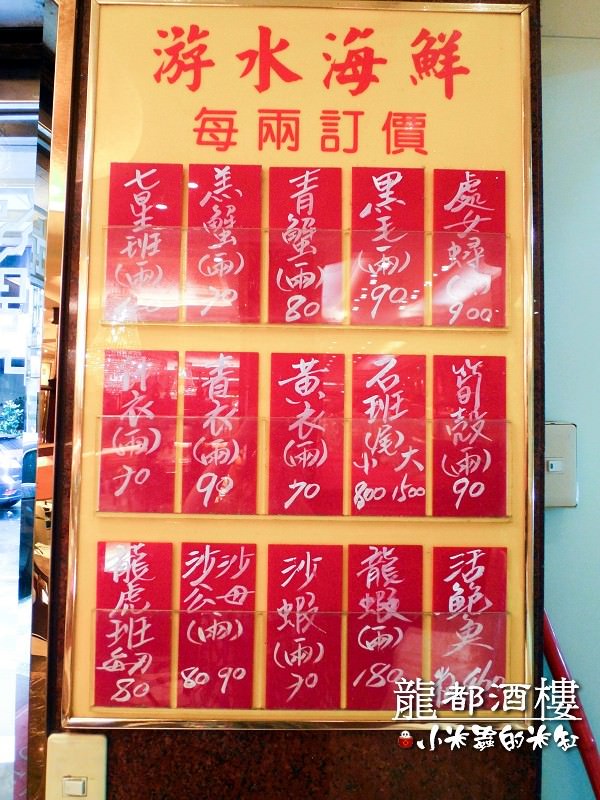 游水海鮮
每兩訂價
七星班(兩)
羔蟹(兩)70
青蟹(兩)80
黑毛(兩)90
處女蟳900
衣(兩)70
青衣(兩)90
黃衣(兩)70
石班(尾)小800大1500
筍殼(兩)90
龍虎班每刃80
沙公沙母(兩)80 90
沙蝦(兩)70
龍蝦(兩)180
活鮑魚
龍都酒樓
小米蟲的米缸